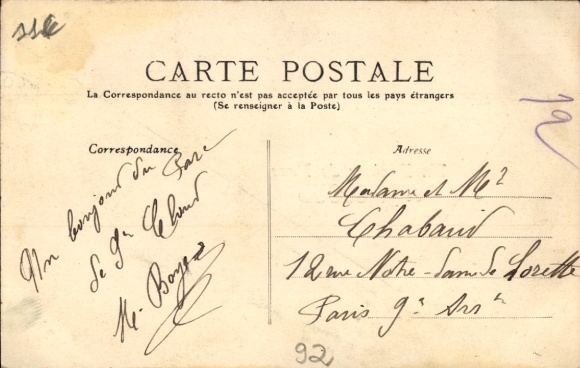 CARTE POSTALE
La Correspondance au recto n'est pas acceptée par tous les pays étrangers
(Se renseigner à la Poste)
Correspondance
Un bonjour du Parc
de St Cloud
M. Boyer
Adresse
Madame et Mr
Chabaud
12 rue Notre-dame de Lorette
Paris 9e Arrt
12
92